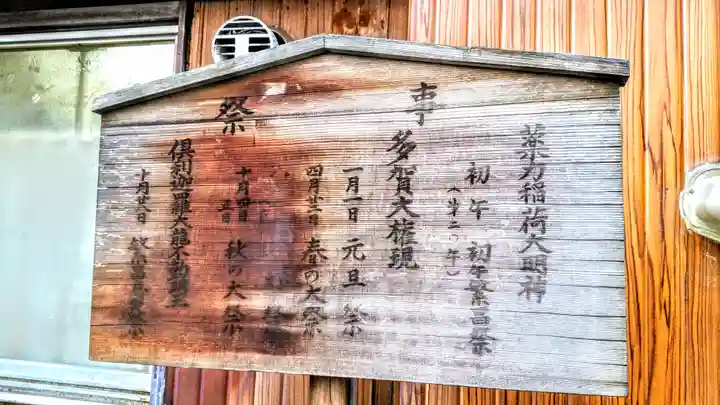 祭事
稲荷大明神
初午 初午繁昌祭
(第二の午)
多賀大権現
一月一日 元旦祭
四月廿二日 春の大祭
十月四日五日 秋の大祭
倶利迦羅大龍不動明王
十月廿日